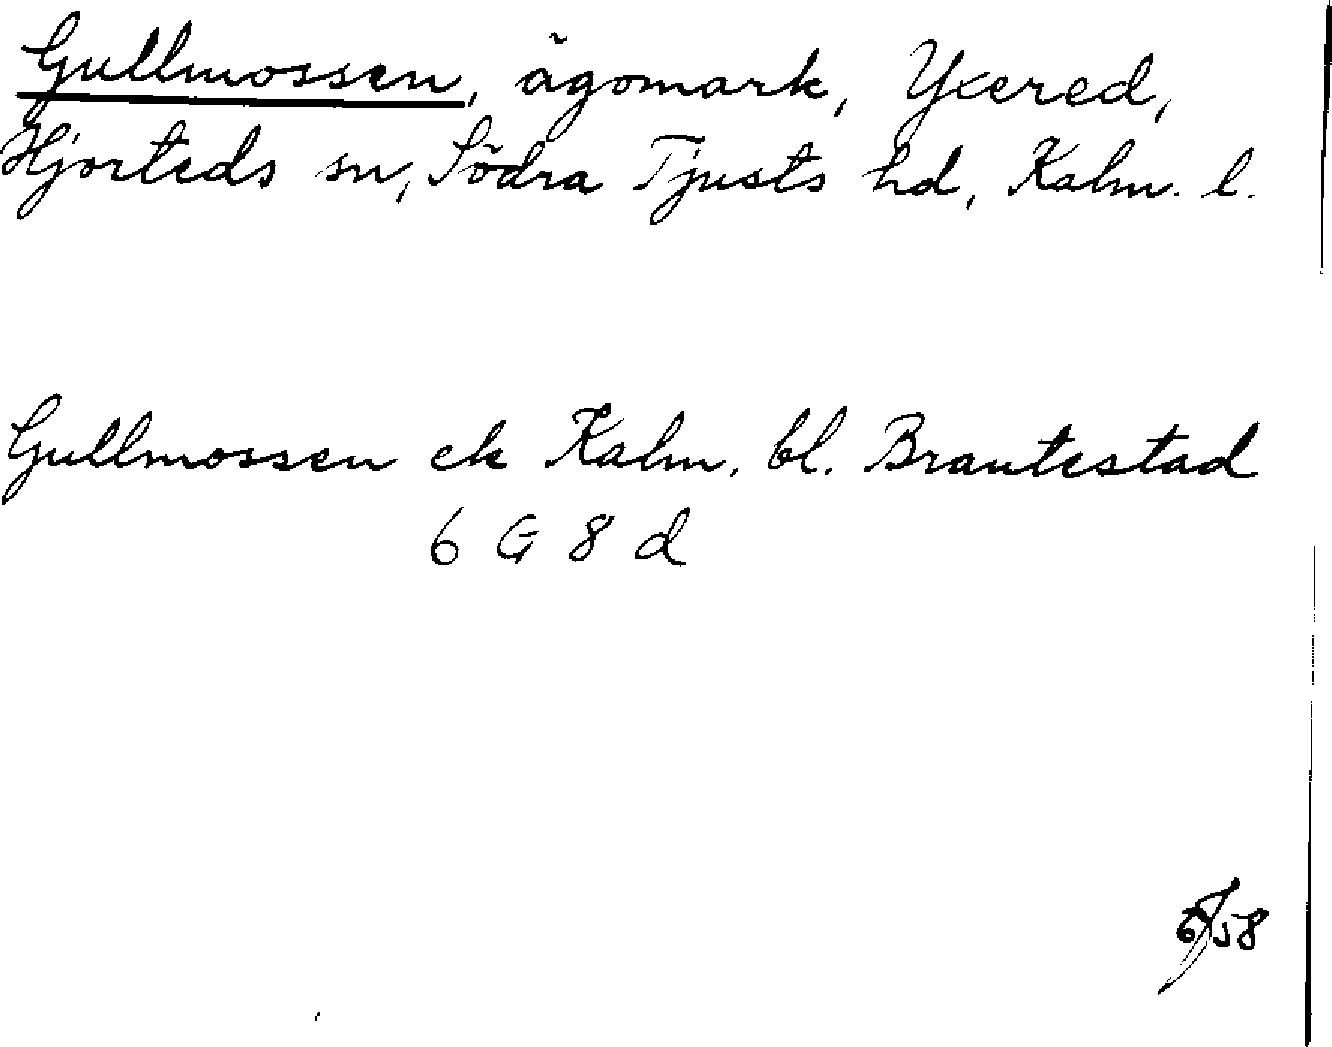 Gullmossen, ägomark, Yxered,
Hjorteds sn, Södra Tjusts hd, Kalm. l.
Gullmossen ek Kalm. bl. Brautestad
6 G 8 d